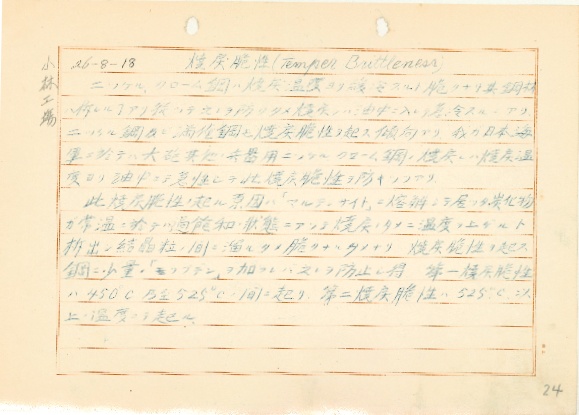 小林工場
26-8-18 焼戻脆性(Temper Brittleness)
ニッケル、クローム鋼ハ焼戻温度ヨリ スルト脆クナリ
ニッケル鋼及ビ満俺鋼モ焼戻脆性ヲ起ス傾向アリ 我ガ日本海
軍ニ於テハ大砲其他ノ兵器用ニッケルクローム鋼ノ焼戻シハ焼戻温
度ヨリ油中デ急 シテ此焼戻脆性ヲ防ギツツアリ
此焼戻脆性ノ起ル原因ハ「マルテンサイト」ニ溶解シテ居ツタ炭化物
ガ常温ニ於テハ過飽和ノ状態ニアツテ焼戻ノタメニ温度ヲ上ゲルト
析出シ結晶粒ノ間ニ溜ルタメ脆クナルタメナリ 焼戻脆性ヲ起ス
鋼ニ少量ノ「モリブデン」ヲ加フレバ之ヲ防止シ得 第一焼戻脆性
ハ450°C乃至525°Cノ間ニ起リ、第二焼戻脆性ハ525°C以
上ノ温度デ起ル
24